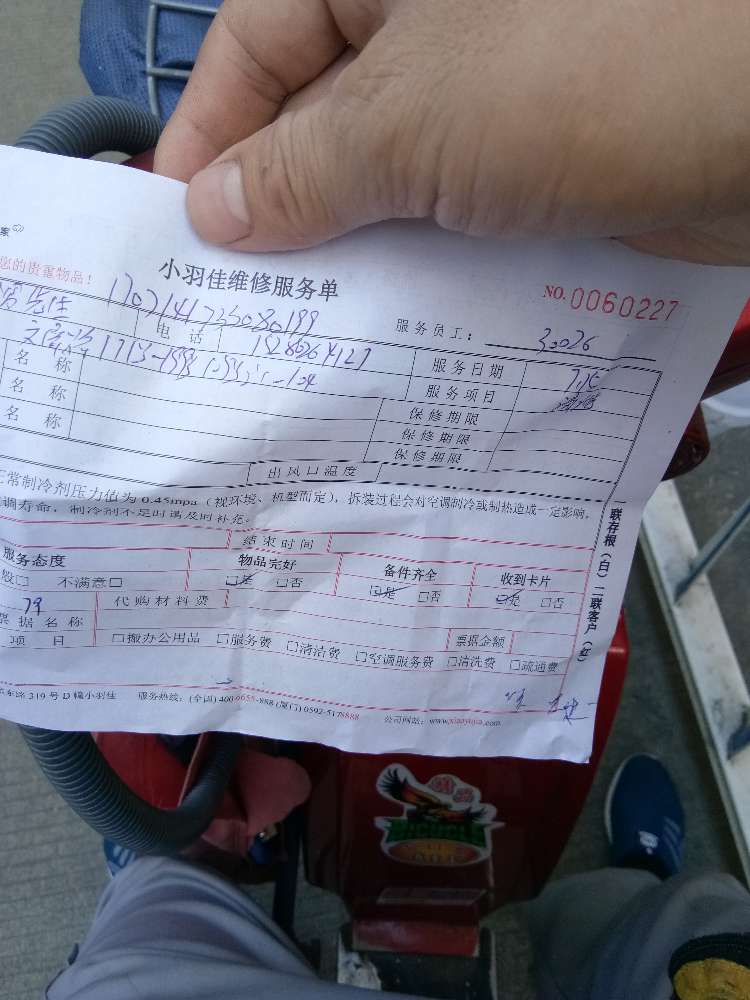 家
您的贵重物品！
小羽佳维修服务单
NO. 0060227
先生 电话 1707141733080199
服务员工： 32026
18286264127
服务日期 7.15
名称 服务项目
名称 保修期限
名称 保修期限
保修期限
出风口温度
正常制冷剂压力值为 0.45mpa（视环境、机型而定），拆装过程会对空调制冷或制热造成一定影响，
调寿命，制冷剂不足时请及时补充。
结束时间
服务态度 物品完好 备件齐全 收到卡片
般□ 不满意□ □是 □否 □是 □否 □是 □否
79 代购材料费
票据名称 票据金额
项目 □搬办公用品 □服务费 □清洁费 □空调服务费 □清洗费 □疏通费
东路 319 号 D 幢小羽佳 服务热线：(全国) 400-6655-888 (厦门) 0592-5178888 公司网址：www.xiaoyujia.com
联存根（白）二联客户（红）